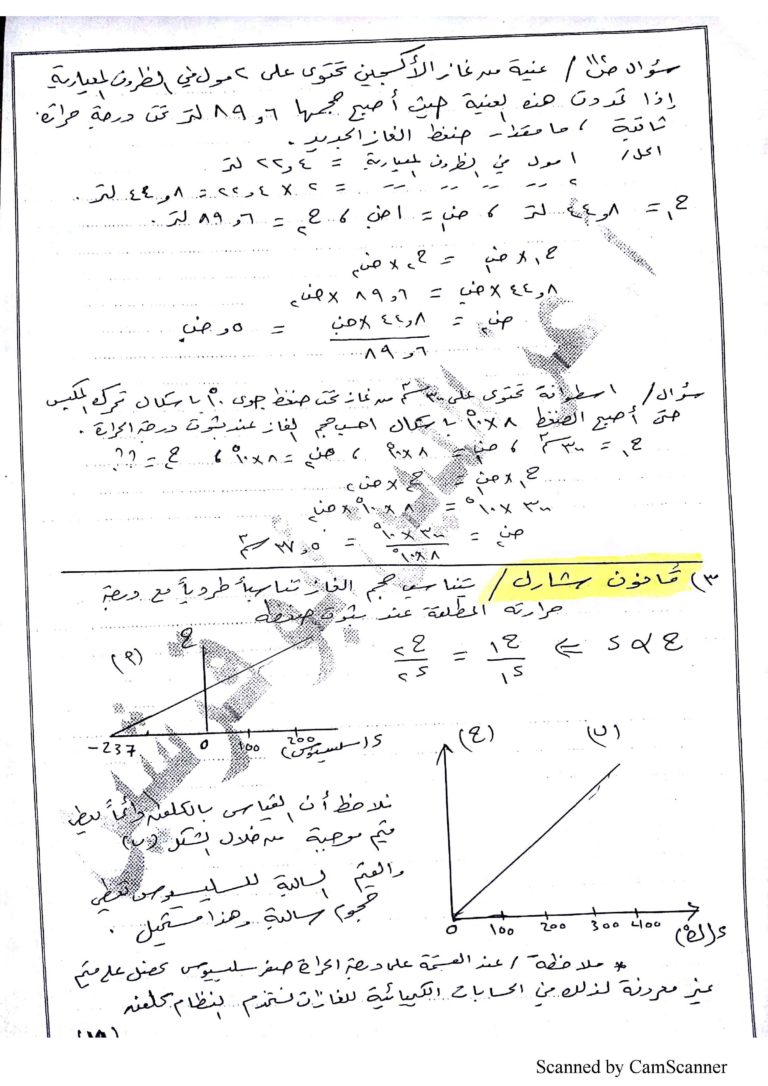 سؤال ص١١٢ / عينة من غاز الأكسجين تحتوي على ٢ مول في الظروف المعيارية
إذا تمددت هذه العينة حيث أصبح حجمها ٨٩,٦ لتر تحت درجة حرارة
ثابتة ، ما مقدار ضغط الغاز الجديد .
الحل / ١ مول في الظروف المعيارية = ٢٢,٤ لتر
٢ = ٢ × ٢٢,٤ = ٤٤,٨ لتر .
ح١ = ٤٤,٨ لتر ، ض١ = ١ ض ، ح٢ = ٨٩,٦ لتر .
ح١ × ض١ = ح٢ × ض٢
٤٤,٨ × ض = ٨٩,٦ × ض٢
ض٢ = ٤٤,٨ × ض = ٠,٥ ض
٨٩,٦
سؤال / اسطوانة تحتوي على ٣٠٠ سم٣ من غاز تحت ضغط جوي ١٠٥ باسكال تحرك المكبس
حتى أصبح الضغط ٨ × ١٠٥ باسكال احسب حجم الغاز عند ثبوت درجة الحرارة .
ح١ = ٣٠٠ سم٣ ، ض١ = ٨ × ١٠٥ ، ض٢ = ٨ × ١٠٥ ، ح = ؟؟
ح١ × ض١ = ح٢ × ض٢
٣٠٠ × ١٠٥ = ٨ × ١٠٥ × ض٢
ض٢ = ٣٠٠ × ١٠٥ = ٣٧,٥ سم٣
٨ × ١٠٥
٣) قانون شارل / يتناسب حجم الغاز تناسباً طردياً مع درجة
حرارته المطلقة عند ثبوت ضغطه
ح ∝ د ⇐ ح١ = ح٢
د١ د٢
(أ) ح
-237 0 100 200 د (سلسيوس)
(ح) (ب)
نلاحظ أن القياس بالكلفن دائماً يعطي
قيم موجبة من خلال الشكل (ب)
والقيم السالبة للسلسيوس تعطي
حجوم سالبة وهذا مستحيل .
0 100 200 300 400 د (كْ)
* ملاحظة / عند القسمة على درجة الحرارة صفر سلسيوس نحصل على قيم
غير معروفة لذلك في الحسابات الكيميائية للغازات نستخدم النظام بكلفن
Scanned by CamScanner